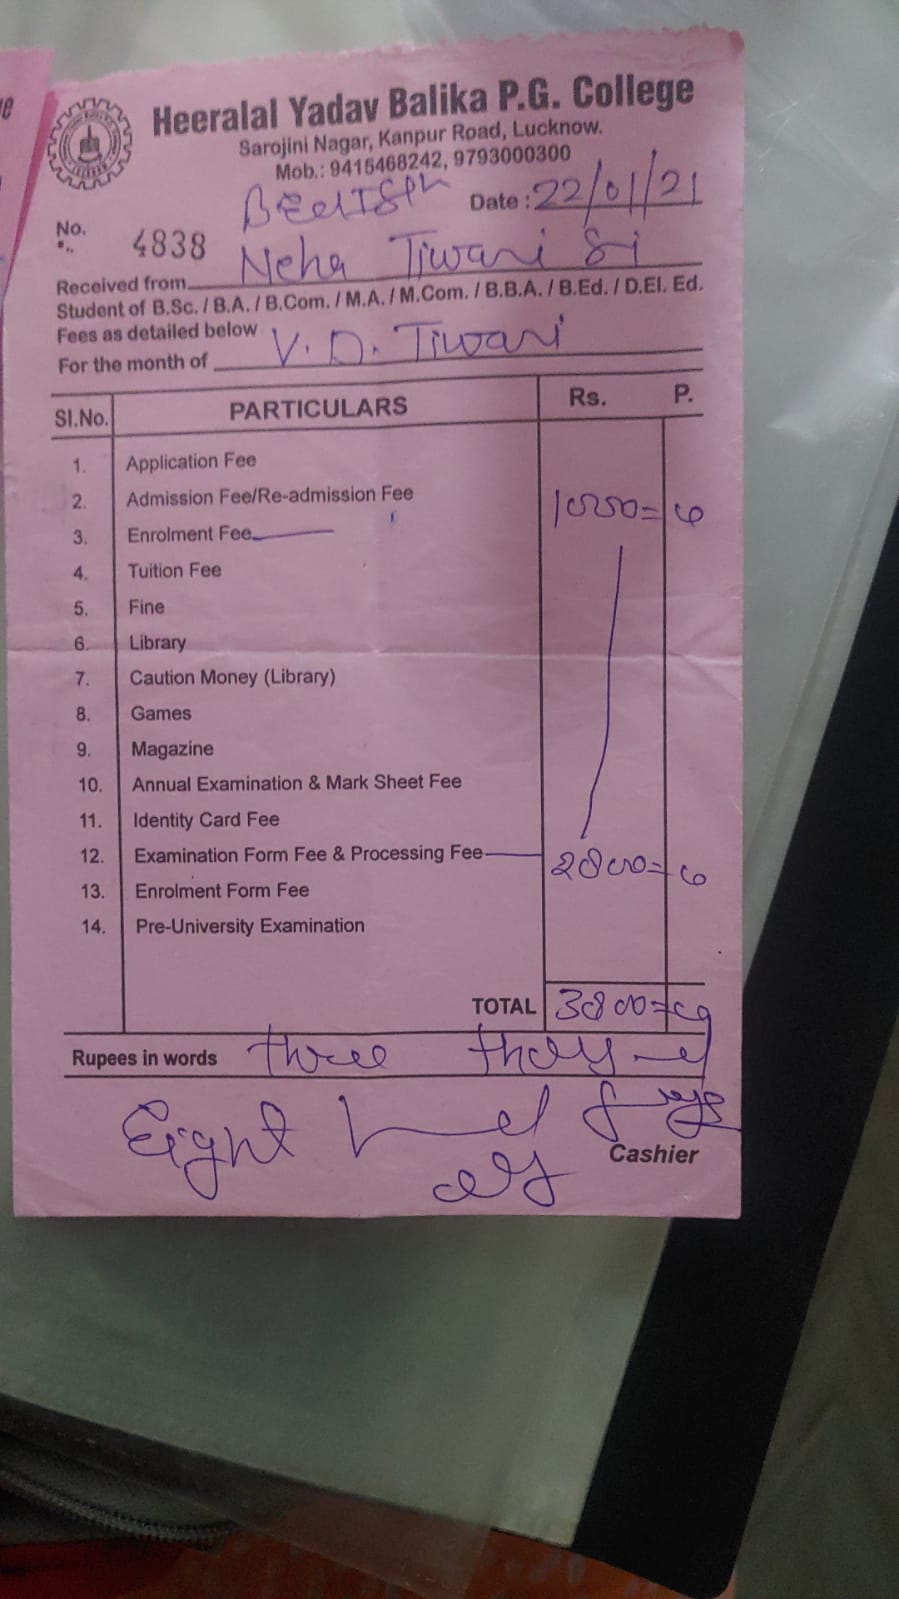 Heeralal Yadav Balika P.G. College
Sarojini Nagar, Kanpur Road, Lucknow.
Mob.: 9415468242, 9793000300
Date : 22/01/21
No. 4838
Received from Neha Tiwari
Student of B.Sc. / B.A. / B.Com. / M.A. / M.Com. / B.B.A. / B.Ed. / D.El. Ed.
Fees as detailed below
For the month of V. D. Tiwari
Sl.No. PARTICULARS Rs. P.
1. Application Fee
2. Admission Fee/Re-admission Fee
3. Enrolment Fee 1000=
4. Tuition Fee
5. Fine
6. Library
7. Caution Money (Library)
8. Games
9. Magazine
10. Annual Examination & Mark Sheet Fee
11. Identity Card Fee
12. Examination Form Fee & Processing Fee 2800=
13. Enrolment Form Fee
14. Pre-University Examination
TOTAL 3800=
Rupees in words three
Eight
Cashier